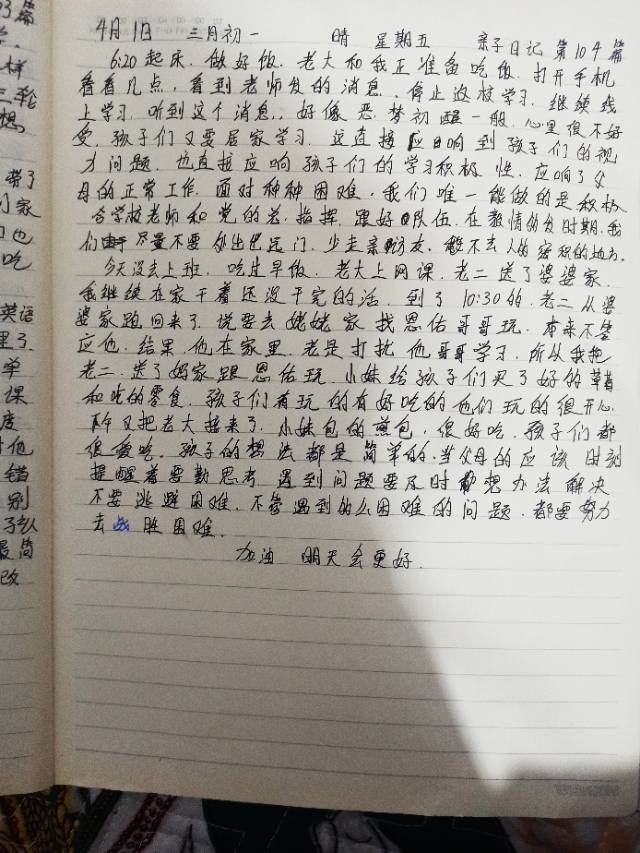 03篇
样
三轮
想
带了
家
们也
吃
英语
里了
单
课
度
他
错
别
了认
最简
改
4月1日 三月初一 晴 星期五 亲子日记 第104篇
6:20起床，做好饭，老大和我正准备吃饭，打开手机
看看几点，看到老师发的消息，停止返校学习，继续线
上学习，听到这个消息，好像恶梦初醒一般，心里很不好
受，孩子们又要居家学习，这直接应响到孩子们的视
力问题，也直接应响孩子们的学习积极性，应响了父
母的正常工作，面对种种困难，我们唯一能做的是积极
学校老师和党的 指挥，跟好队伍，在 情的发时期，我
们 尽量不要外出 门，少走亲访友，不去人 密积的地方。
今天没去上班，吃过早饭，老大上网课，老二送了婆婆家，
我继续在家干着还没干完的活，到了10:30的，老二从婆
婆家跑回来了，说要去姥姥家找恩佑哥哥玩，本来不答
应他，结果，他在家里，老是打扰他哥哥学习，所从我把
老二送了妈家跟恩佑玩，小妹给孩子们买了好的草莓
和吃的零食，孩子们有玩的有好吃的他们玩的很开心，
下午又把老大接来了，小妹包的煎包，很好吃，孩子们都
很爱吃，孩子的想法都是简单的，当父母的应该时刻
提醒着要勤思考，遇到问题要及时想办法解决
不要逃避困难，不管遇到的么困难的问题，都要努力
去战胜困难。
加油 明天会更好。